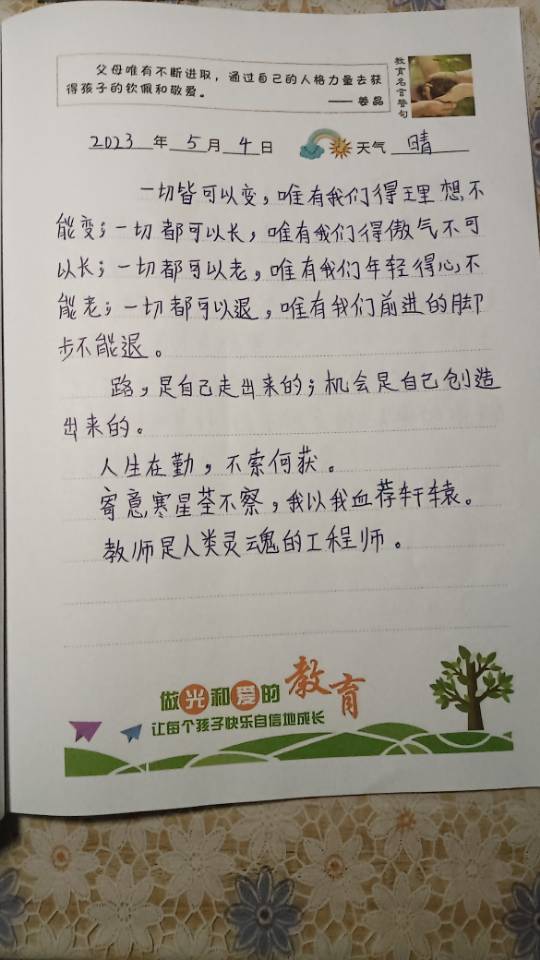 父母唯有不断进取，通过自己的人格力量去获
得孩子的钦佩和敬爱。
—— 姜晶
教育名言警句
2023 年 5 月 4 日 天气 晴
一切皆可以变，唯有我们得理想不
能变；一切都可以长，唯有我们得傲气不可
以长；一切都可以老，唯有我们年轻得心不
能老；一切都可以退，唯有我们前进的脚
步不能退。
路，是自己走出来的；机会是自己创造
出来的。
人生在勤，不索何获。
寄意寒星荃不察，我以我血荐轩辕。
教师是人类灵魂的工程师。
做光和爱的教育
让每个孩子快乐自信地成长